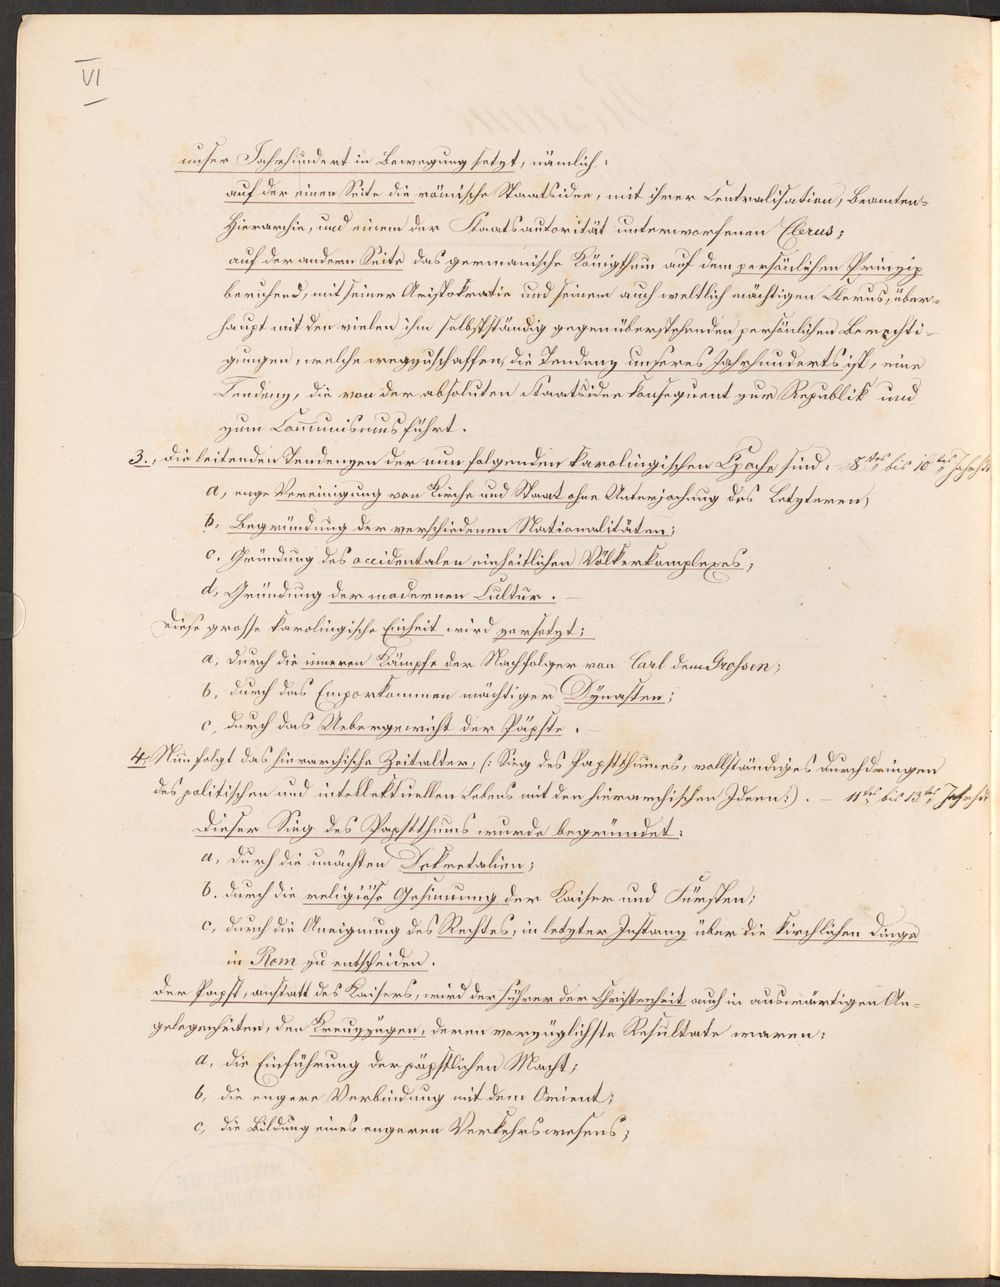 VI
unser Jahrhundert in Bewegung setzt, nämlich:
auf der einen Seite die römische Staatsidee, mit ihrer Centralisation, Beamten-
Hierarchie, und einem der Staatsautorität unterworfenen Clerus;
auf der andern Seite das germanische Königthum auf dem persönlichen Prinzip
beruhend, mit seiner Aristokratie und seinem auch weltlich mächtigen Clerus, über-
haupt mit den vielen ihm selbstständig gegenüberstehenden persönlichen Berechti-
gungen, welche wegzuschaffen, die Tendenz unseres Jahrhunderts ist, eine
Tendenz, die von der absoluten Staatsidee konsequent zur Republik und
zum Communismus führt.
3., Die leitenden Tendenzen der nun folgenden karolingischen Epoche sind: 8tes bis 10tes Jahrhdt
a, enge Vereinigung von Kirche und Staat ohne Unterjochung des Letzteren;
b, Begründung der verschiedenen Nationalitäten;
c. Gründung des occidentalen einheitlichen Völkerkomplexes;
d, Gründung der modernen Cultur. —
Diese grosse karolingische Einheit wird zersetzt:
a, durch die inneren Kämpfe der Nachfolger von Carl dem Grossen;
b, durch das Emporkommen mächtiger Dynasten;
c, durch das Uebergewicht der Päpste. —
4, Nun folgt das hierarchische Zeitalter, (: Sieg des Papstthumes, vollständiges Durchdringen
des politischen und intellektuellen Lebens mit den hierarchischen Ideen:). — 11tes bis 13tes Jahrhdt
Dieser Sieg des Papstthums wurde begründet:
a, durch die unächten Dekretalien;
b. durch die religiöse Gesinnung der Kaiser und Fürsten;
c, durch die Aneignung des Rechtes, in letzter Instanz über die kirchlichen Dinge
in Rom zu entscheiden.
Der Papst, anstatt des Kaisers, wird der Führer der Christenheit auch in auswärtigen An-
gelegenheiten, den Kreuzzügen, deren vorzüglichste Resultate waren:
a, die Einführung der päpstlichen Macht;
b, die engere Verbindung mit dem Orient;
c, die Bildung eines engeren Verkehrswesens;